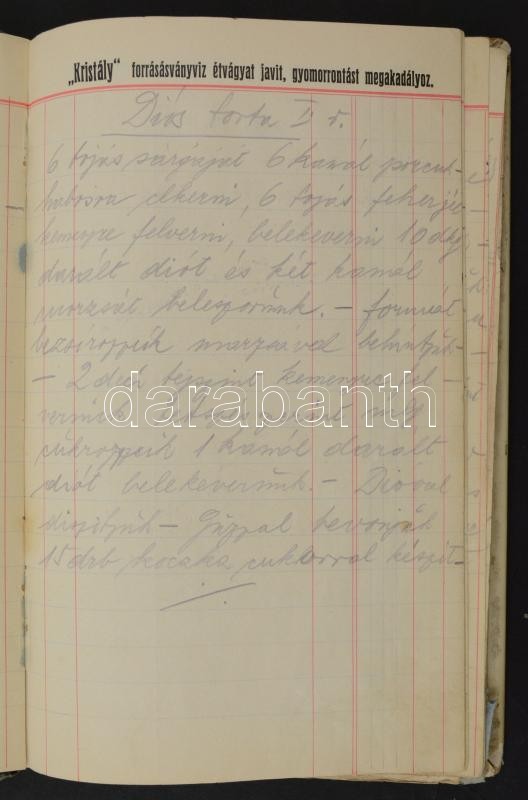 „Kristály“ forrásásványviz étvágyat javit, gyomorrontást megakadályoz.
Diós torta I r.
6 tojás sárgáját 6 kanál porcuk-
habosra elkerni, 6 tojás fehérjé
keményre felverni, belekeverni 10 dkg
darált diót és két kanál
morzsát beleszórunk. – formát
kizsírozzuk morzsával behintjük
– 2 deci tejszint keményre fel –
verünk
cukrozzuk 1 kanál darált
diót belekeverünk. – Dióval
diszitjük – bevonjuk
15 drb kocka cukorral készit–
darabanth